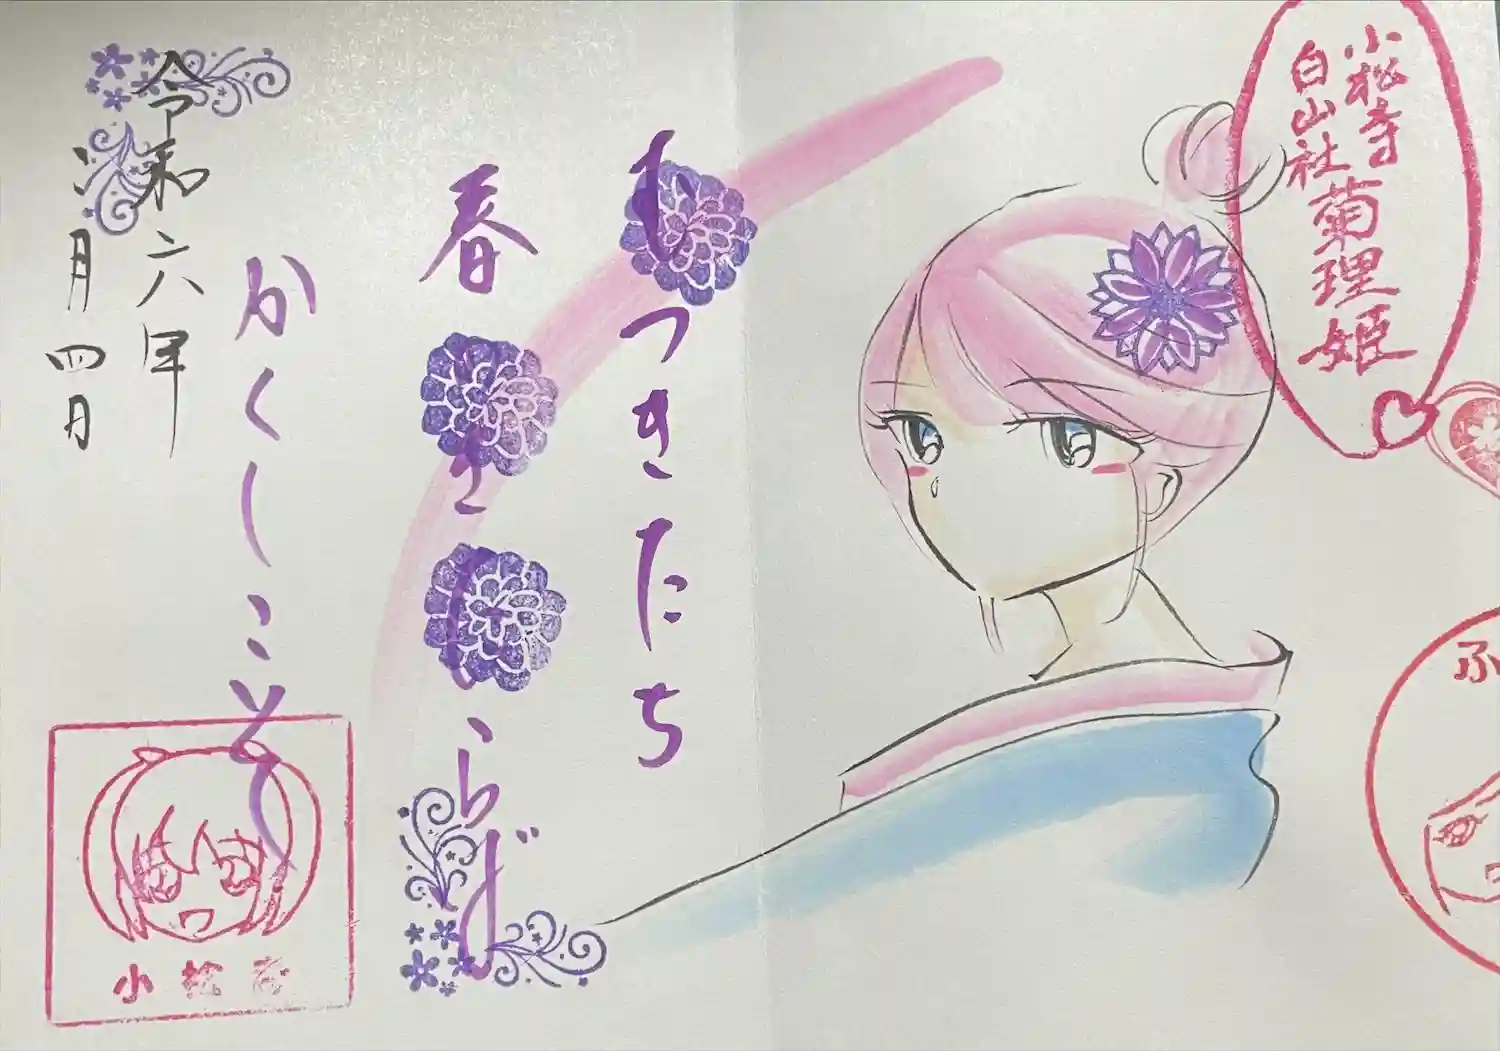 小松寺
白山社菊理姫
ふ
むつきたち
春さとらじ
かくしこそ
令和六年
二月四日
小松寺